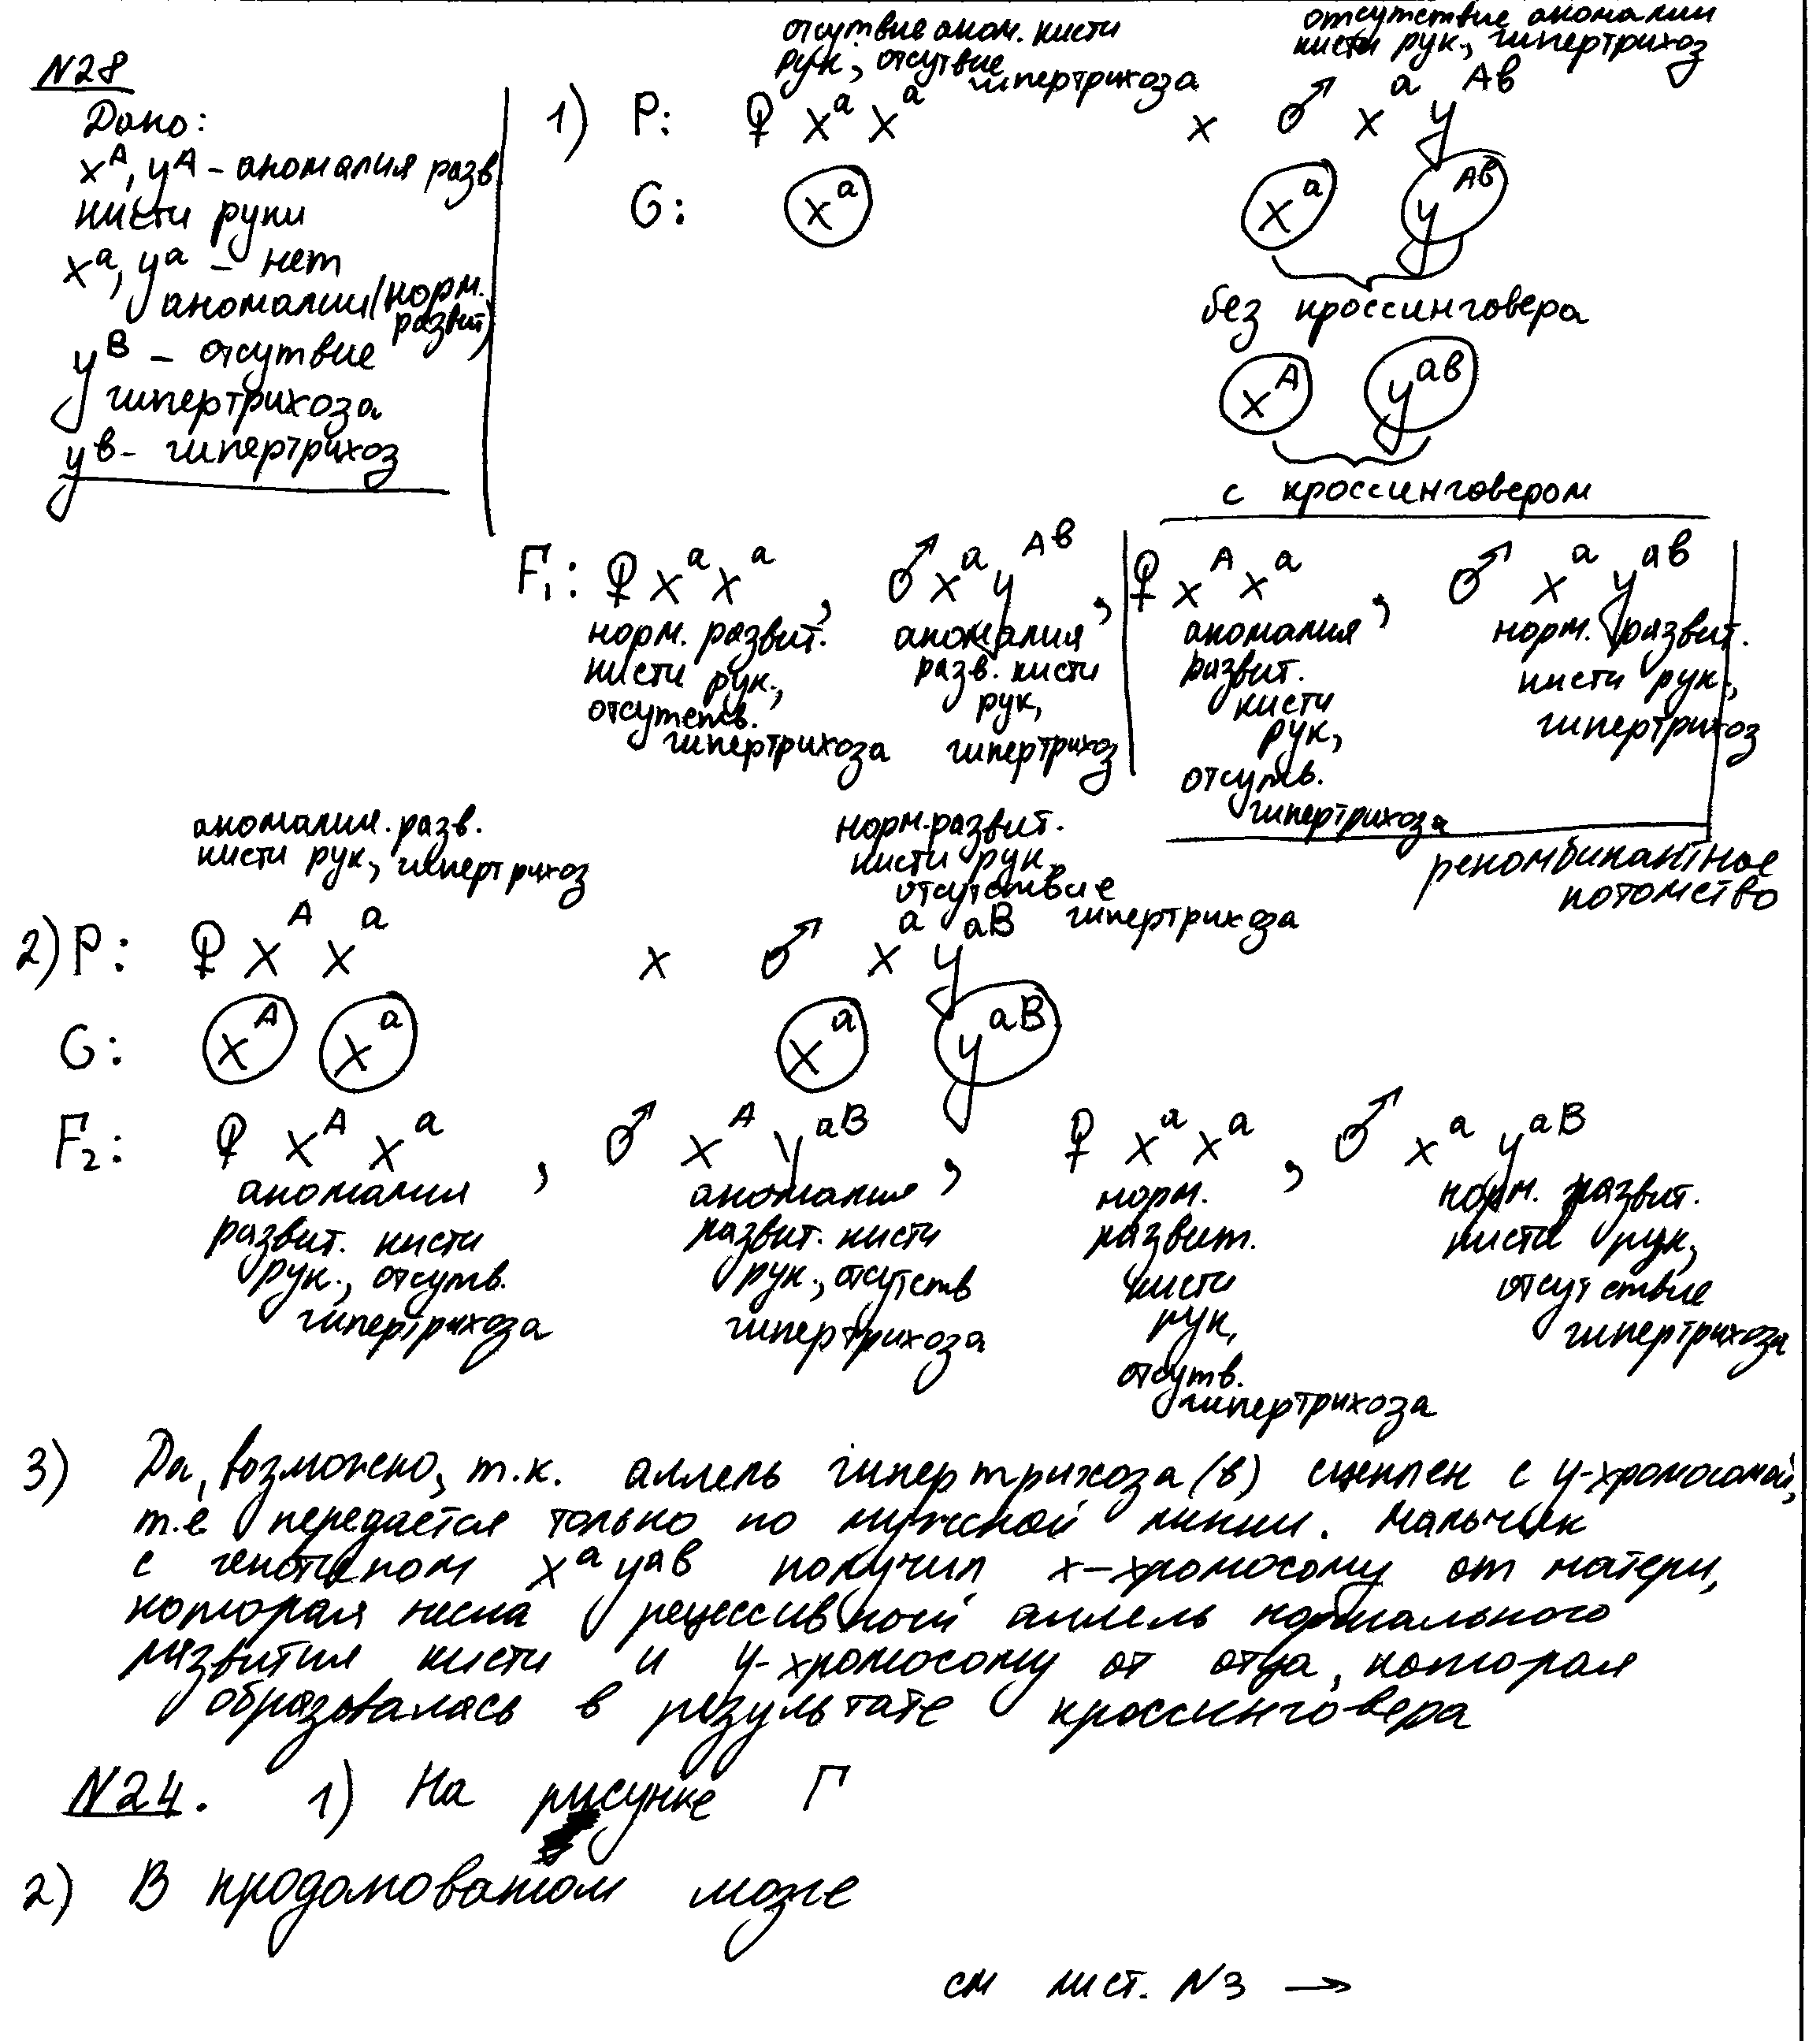 N28
Дано:
x^A, y^A - аномалия разв
кисти руки
x^a, y^a - нет
аномалии (норм.
развит)
y^B - отсутвие
гипертрихоза
y^в - гипертрихоз
отсутвие аном. кисти
рук, отсутвие
гипертрихоза
отсутствие аномалии
кисти рук, гипертрихоз
1) P: ♀ x^a x^a x ♂ x^a y^Aв
G: x^a x^a y^Aв
без кроссинговера
x^A y^aв
с кроссинговером
F₁: ♀ x^a x^a, ♂ x^a y^Aв, ♀ x^A x^a, ♂ x^a y^aв
норм. развит.
кисти рук.,
отсутств.
гипертрихоза
аномалия
разв. кисти
рук,
гипертрихоз
аномалия
развит.
кисти
рук,
отсутв.
гипертрихоза
норм. развит.
кисти рук.,
гипертрихоз
рекомбинантное
потомство
аномалия. разв.
кисти рук, гиперт рихоз
норм. развит.
кисти рук,
отсутствие
гипертрихоза
2) P: ♀ x^A x^a x ♂ x^a y^aB
G: x^A x^a x^a y^aB
F₂: ♀ x^A x^a, ♂ x^A y^aB, ♀ x^a x^a, ♂ x^a y^aB
аномалия
развит. кисти
рук., отсутв.
гипертрихоза
аномалия
развит. кисти
рук., отсутств
гипертрихоза
норм.
развит.
кисти
рук,
отсутв.
гипертрихоза
норм. развит.
кисти рук,
отсутствие
гипертрихоза
3) Да, возможно, т.к. аллель гипертрихоза (в) сцеплен с y-хромосомой,
т.е передается только по мужской линии. Мальчик
с генотипом x^a y^aв получил x-хромосому от матери,
которая несла рецессивный аллель нормального
развития кисти и y-хромосому от отца, которая
образовалась в результате кроссинговера
N24. 1) На рисунке Г
2) В продолговатом мозге
см лист. N3 →